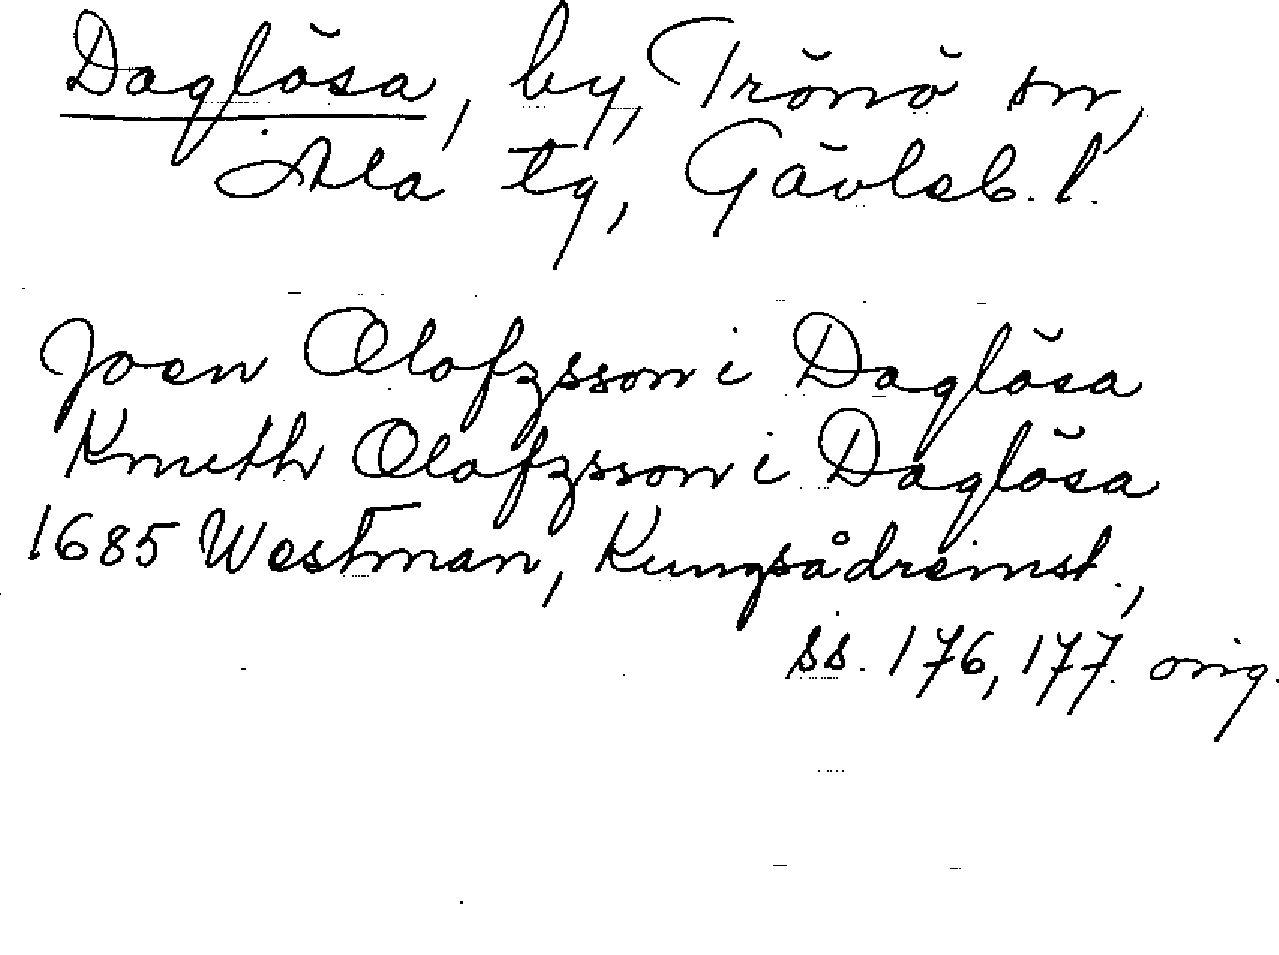 Daglösa, by, Trönö sn,
Ala tg, Gävleb. l.
Joen Olofzsson i Daglösa
Knuth Olofzsson i Daglösa
1685 Westman, Kungsådreinst.,
ss. 176, 177. orig.